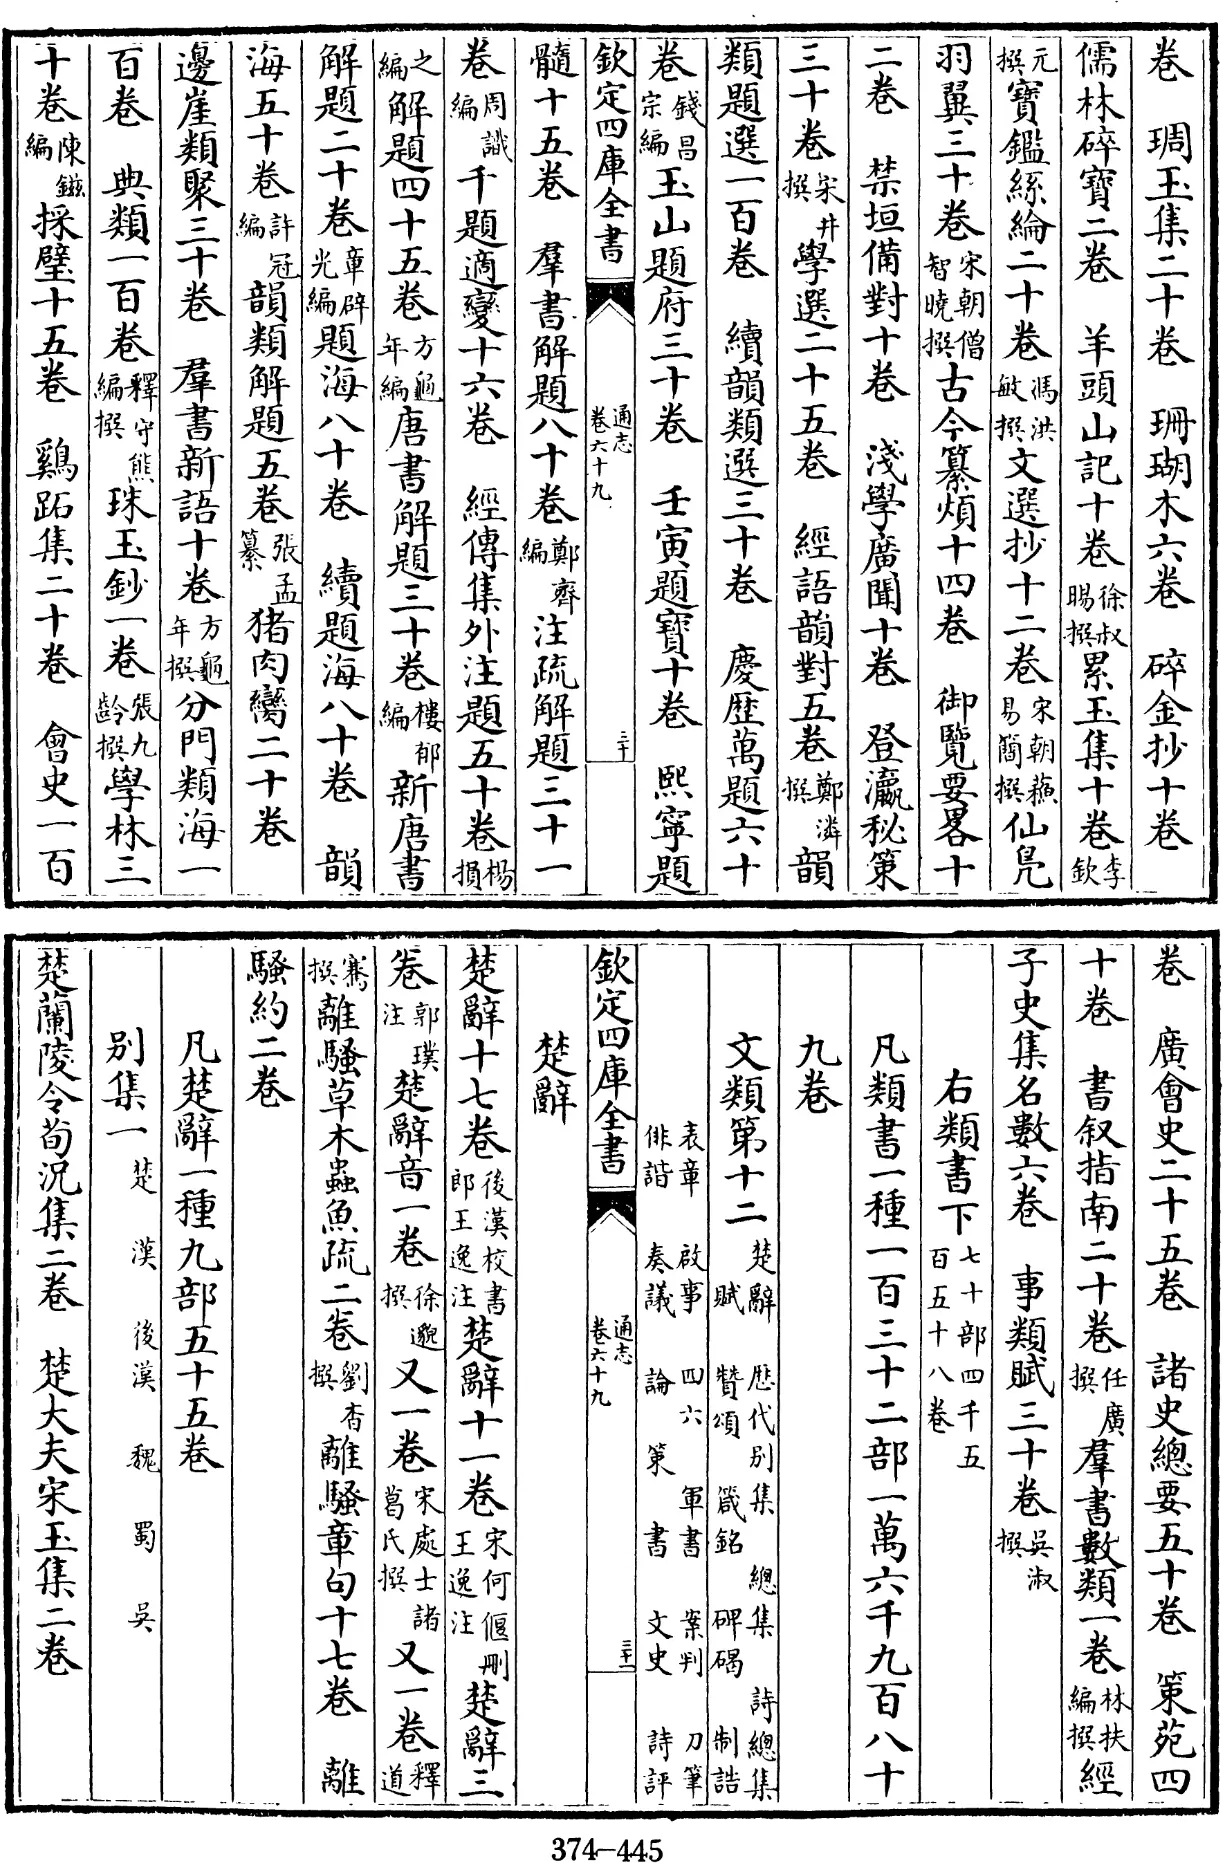 卷　琱玉集二十卷　珊瑚木六卷　碎金抄十卷
儒林碎寳二卷　羊頭山記十卷徐叔賜撰累玉集十卷李欽
元撰寳鑑絲綸二十卷馮洪敏撰文選抄十二卷宋朝蘇易簡撰仙鳬
羽翼三十卷宋朝僧智曉撰古今纂煩十四卷　御覽要畧十
二卷　禁垣備對十卷　淺學廣聞十卷　登瀛秘策
三十卷宋井撰學選二十五卷　經語韻對五卷鄭潾撰韻
類題選一百卷　續韻類選三十卷　慶歴萬題六十
卷錢昌宗編玉山題府三十卷　壬寅題寳十卷　熙寧題
欽定四庫全書　通志卷六十九　三十
髓十五卷　羣書解題八十卷鄭齊編注疏解題三十一
卷周識編千題適變十六卷　經傳集外注題五十卷楊損
之編解題四十五卷方龜年編唐書解題三十卷樓郁編新唐書
解題二十卷章辟光編題海八十卷　續題海八十卷　韻
海五十卷許冠編韻類解題五卷張孟纂猪肉臠二十卷
邊崖類聚三十卷　羣書新語十卷方龜年撰分門類海一
百卷　典類一百卷釋守熊編撰珠玉鈔一卷張九齡撰學林三
十卷陳鎡編採璧十五卷　鷄跖集二十卷　會史一百
卷　廣會史二十五卷　諸史總要五十卷　策苑四
十卷　書叙指南二十卷任廣撰羣書數類一卷林扶編撰經
子史集名數六卷　事類賦三十卷吳淑撰
右類書下七十部四千五百五十八卷
凡類書一種一百三十二部一萬六千九百八十
九卷
文類第十二楚辭　歴代别集　總集　詩總集　賦　贊頌　箴銘　碑碣　制誥
表章　啟事　四六　軍書　案判　刀筆　俳諧　奏議　論　策　書　文史　詩評
欽定四庫全書　通志卷六十九　三十一
楚辭
楚辭十七卷後漢校書郎王逸注楚辭十一卷宋何偃刪王逸注楚辭三
卷郭璞注楚辭音一卷徐邈撰又一卷宋處士諸葛氏撰又一卷釋道
騫撰離騷草木蟲魚疏二卷劉杳撰離騷章句十七卷　離
騷約二卷
凡楚辭一種九部五十五卷
别集一楚　漢　後漢　魏　蜀　吳
楚蘭陵令荀況集二卷　楚大夫宋玉集二卷
374-445